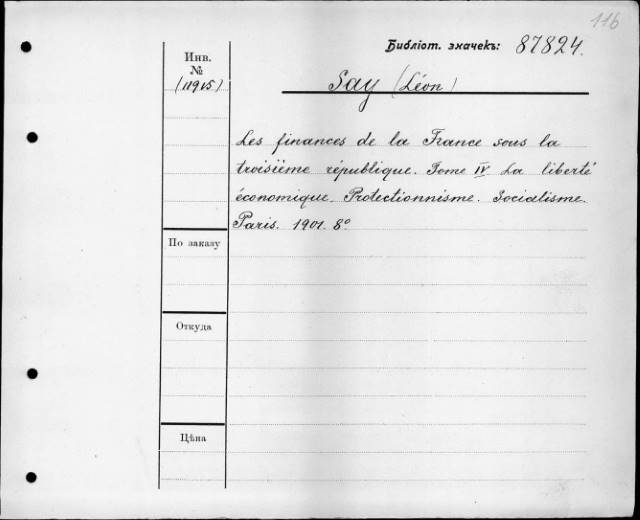 116
Библіот. значекъ: 87824.
Инв.
№
(11915)
Say (Léon)
Les finances de la France sous la
troisième république. Tome IV La liberté
économique. Protectionnisme. Socialisme.
Paris. 1901. 8°.
По заказу
Откуда
Цѣна